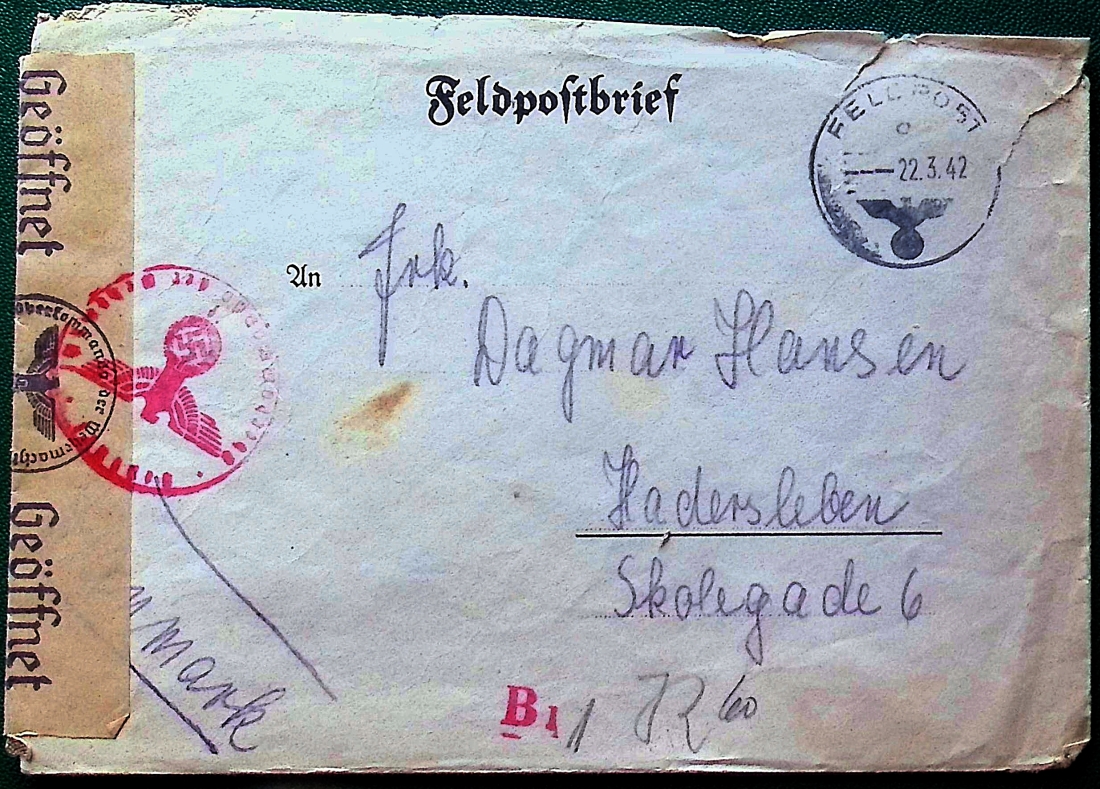 Feldpostbrief
FELDPOST
22.3.42
An Frk.
Dagmar Hansen
Hadersleben
Skolegade 6
Geöffnet
Oberkommando der Wehrmacht
Geöffnet
mark
B1